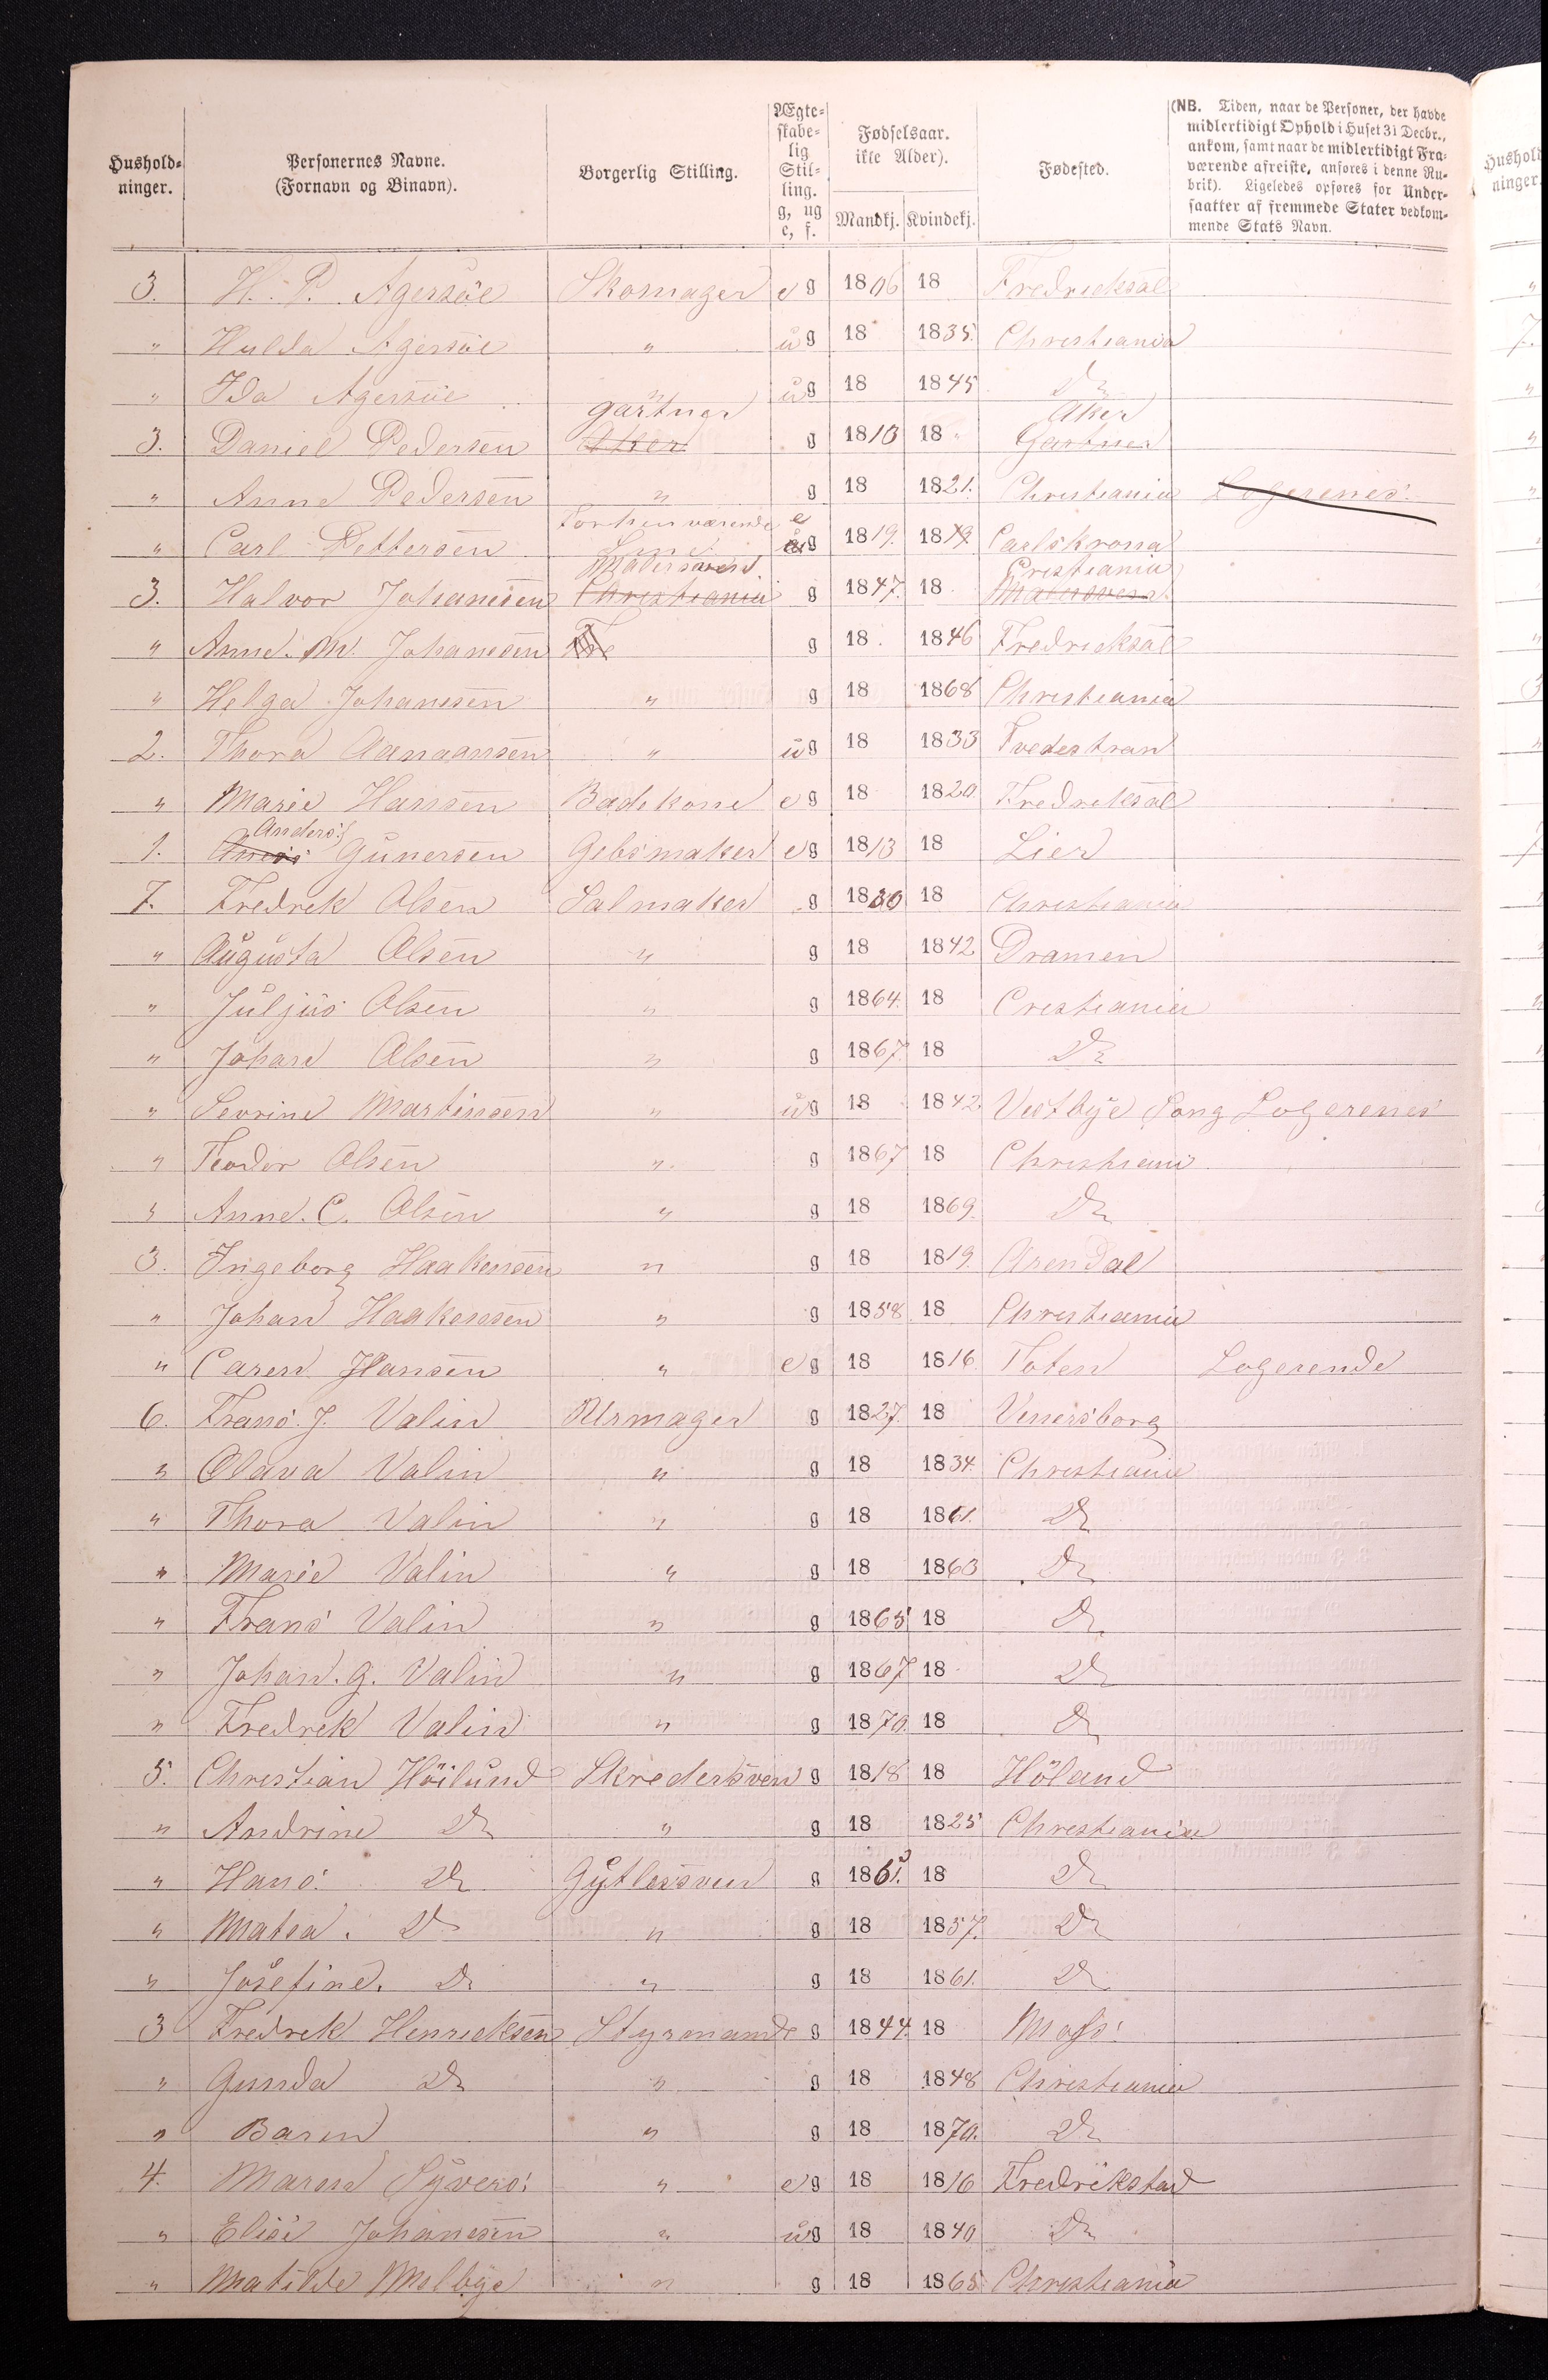 Hushold-
ninger.
Personernes Navne.
(Fornavn og Binavn).
Borgerlig Stilling.
Ægte-
skabe-
lig
Stil-
ling.
g, ug
e, f.
Fødselsaar.
ikke Alder).
Mandkj. Kvindekj.
Fødested.
(NB. Tiden, naar de Personer, der havde
midlertidigt Ophold i Huset 31 Decbr.,
ankom, samt naar de midlertidigt Fra-
værende afreiste, anføres i denne Ru-
brik). Ligeledes opføres for Under-
saatter af fremmede Stater vedkom-
mende Stats Navn.
3. H. P. Agersöe Skomager e g 1806 18 Fredrieksal
" Hulda Agersöe " u g 18 1835. Christiania
" Ida Agersöe " u g 18 1845 Do
gartner Aker
3. Daniel Pedersen Aker g 1813 18 Gartner
" Anne Pedersen " g 18 1821. Christiania Logerenes
Forhenværende e
" Carl Pettersen g 1819. 1819. Carlskrona
Malersvend Cristiania
3. Halvor Johanesen Christiania g 1847. 18 Malersvend
" Anne. M. Johanesen g 18 1846 Fredrieksal
" Helga Johanesen " g 18 1868 Christiania
2. Thora Aanaansen " u g 18 1833 Tvedestran
" Marie Hansen Badekone e g 18 1820. Fredreksal
Anders
1. Gunersen Gebsmaker e g 1813 18 Lier
7. Fredrek Olsen Salmaker g 1830 18 Christiania
" Augusta Olsen " g 18 1842 Dramen
" Juljus Olsen " g 1864. 18 Crestiania
" Johan Olsen " g 1867. 18 Do
" Sevrine Martinsen " u g 18 1842. Vestbye Pang Logerenes
" Teodor Olsen " g 1867 18 Christiani
" Anne. C. Olsen " g 18 1869. Do
3. Ingeborg Haakensen " g 18 1819. Arendal
" Johan Haakensen " g 1858 18 Christiania
" Caren Hansen " e g 18 1816. Toten Logerende
6. Frans. J. Valin Urmager g 1827. 18 Venersborg
" Olava Valin " g 18 1834. Christiania
" Thora Valin " g 18 1861. Do
" Marie Valin " g 18 1863 Do
" Frans Valin " g 1865 18 Do
" Johan. G. Valin " g 1867 18 Do
" Fredrek Valin " g 1870. 18 Do
5. Christian Höilund Skredersven g 1818 18 Höland
" Andrine Do " g 18 1825 Christiania
" Hans. Do Gytlersven g 1861. 18 Do
" Matea. Do " g 18 1857. Do
" Josefine. Do " g 18 1861. Do
3 Fredrek Henrieksen Styrmand g 1844. 18 Moss
" Gunda Do " g 18 1848 Christiania
" Baren " g 18 1870. Do
4. Maren Syvers. " e g 18 1816 Fredrikstad
" Elise Johanesen " u g 18 1840 Do
" Matilde Melbye " g 18 1865 Christiania
Hushold
ninger.